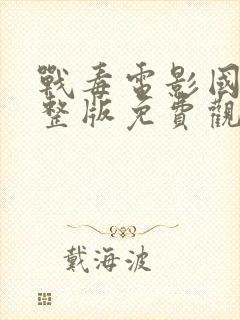 戰毒電影國
整版免費觀
戴海波